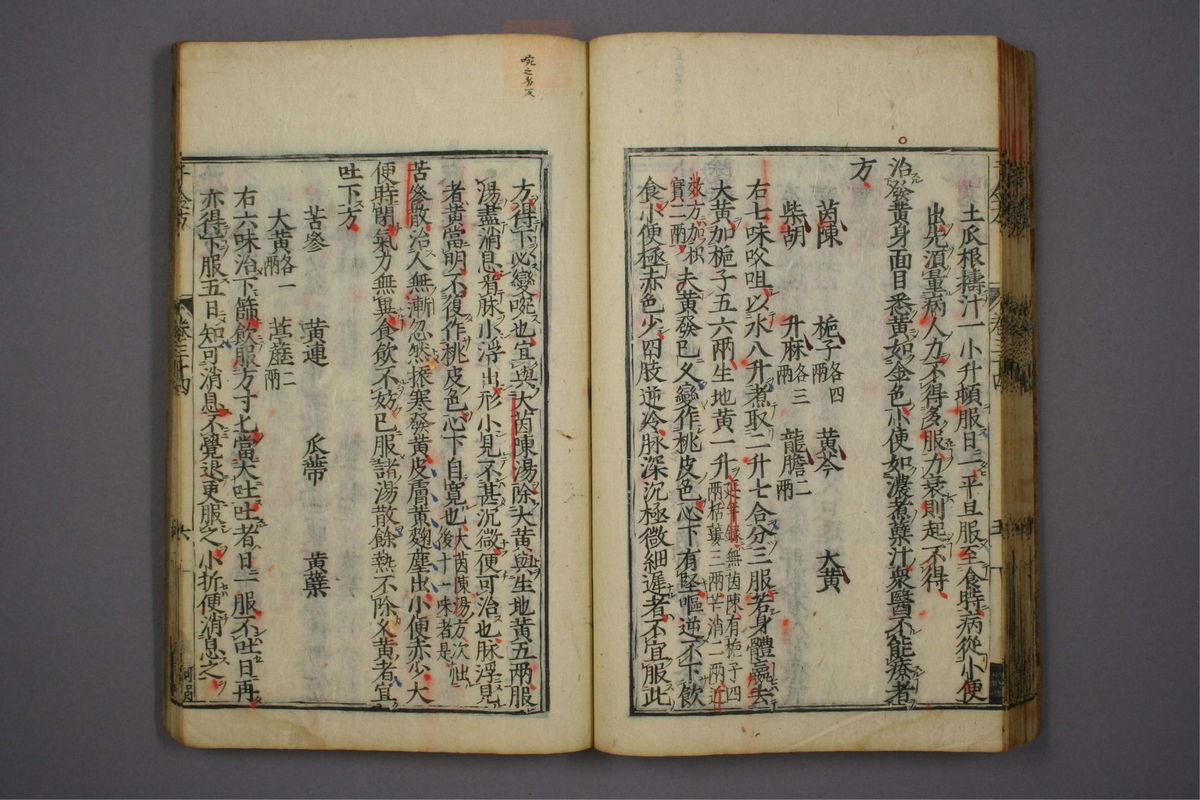 土瓜根擣汁一小升頓服日一平旦服至食時病從小便
出先須量病人力不得多服力衰則起不得
治發黃身面目悉黃如金色小便如濃煮蘗汁衆醫不能療者
方
茵陳 梔子各四兩 黃芩 大黃
柴胡 升麻各三兩 龍膽二兩
右七味㕮咀以水八升煮取二升七合分三服若身體羸去
大黃加梔子五六兩生地黃一升延年錄無茵陳有梔子四兩栝蔞三兩芒消二兩近
效方加枳實二兩夫黃發已久變作桃皮色心下有堅嘔逆不下飲
食小便極赤色少四肢逆冷脉深沉極微細遲者不宜服此
方得下必變啘也宜與大茵陳湯除大黃與生地黃五兩服
湯盡消息看脉小浮出形小見不甚沉微便可治也脉浮見
者黃當明不復作桃皮色心下自寬也大茵陳湯方次後十一味者是
苦參散治人無漸忽然振寒發黃皮膚黃麴塵出小便赤少大
便時閉氣力無異食飲不妨已服諸湯散餘熱不除久黃者宜
吐下方
苦參 黃連 瓜蒂 黃蘗
大黃各一兩 葶藶二兩
右六味治下篩飲服方寸匕當大吐吐者日一服不吐日再
亦得下服五日知可消息不覺退更服之小折便消息之
卷三十四
五
六
啘之劣反